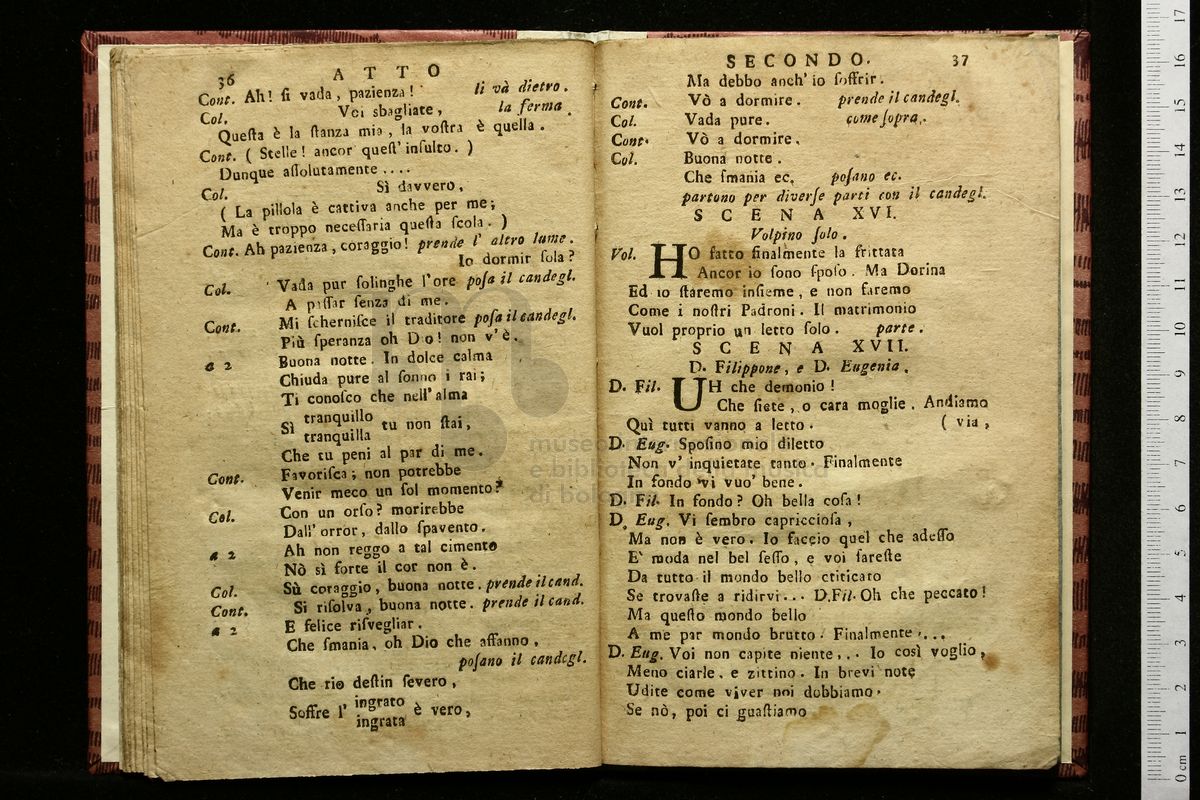 36
A T T O
Cont. Ah! ſi vada, pazienza! li và dietro.
Col. Voi sbagliate, la ferma.
Queſta è la ſtanza mia, la voſtra è quella.
Cont. ( Stelle! ancor queſt' inſulto. )
Dunque aſſolutamente ....
Col. Sì davvero,
( La pillola è cattiva anche per me;
Ma è troppo neceſſaria queſta ſcola. )
Cont. Ah pazienza, coraggio! prende l' altro lume.
Io dormir ſola?
Col. Vada pur ſolinghe l'ore poſa il candegl.
A paſſar ſenza di me.
Cont. Mi ſcherniſce il traditore poſa il candegl.
Più ſperanza oh Dio! non v'è.
a 2 Buona notte. In dolce calma
Chiuda pure al ſonno i rai;
Ti conoſco che nell' alma
Sì tranquillo tu non ſtai,
tranquilla
Che tu peni al par di me.
Cont. Favoriſca; non potrebbe
Venir meco un ſol momento?
Col. Con un orſo? morirebbe
Dall' orror, dallo ſpavento.
a 2 Ah non reggo a tal cimento
Nò sì forte il cor non è.
Col. Sù coraggio, buona notte. prende il cand.
Cont. Si riſolva, buona notte. prende il cand.
a 2 E felice riſvegliar.
Che ſmania, oh Dio che affanno,
poſano il candegl.
Che rio deſtin ſevero,
Soffre l' ingrato è vero,
ingrata
SECONDO.
37
Ma debbo anch' io ſoffrir.
Cont. Vò a dormire. prende il candegl.
Col. Vada pure. come ſopra.
Cont. Vò a dormire.
Col. Buona notte.
Che ſmania ec. poſano ec.
partono per diverſe parti con il candegl.
S C E N A XVI.
Volpino ſolo.
Vol. HO fatto finalmente la frittata
Ancor io ſono ſpoſo. Ma Dorina
Ed io ſtaremo inſieme, e non faremo
Come i noſtri Padroni. Il matrimonio
Vuol proprio un letto ſolo. parte.
S C E N A XVII.
D. Filippone, e D. Eugenia.
D. Fil. UH che demonio!
Che ſiete, o cara moglie. Andiamo
Quì tutti vanno a letto. ( via,
D. Eug. Spoſino mio diletto
Non v' inquietate tanto. Finalmente
In fondo vi vuo' bene.
D. Fil. In fondo? Oh bella coſa!
D. Eug. Vi ſembro capriccioſa,
Ma non è vero. Io faccio quel che adeſſo
E' moda nel bel ſeſſo, e voi fareſte
Da tutto il mondo bello ctiticato
Se trovaſte a ridirvi... D. Fil. Oh che peccato!
Ma queſto mondo bello
A me par mondo brutto. Finalmente....
D. Eug. Voi non capite niente... Io così voglio,
Meno ciarle, e zittino. In brevi note
Udite come viver noi dobbiamo.
Se nò, poi ci guaſtiamo